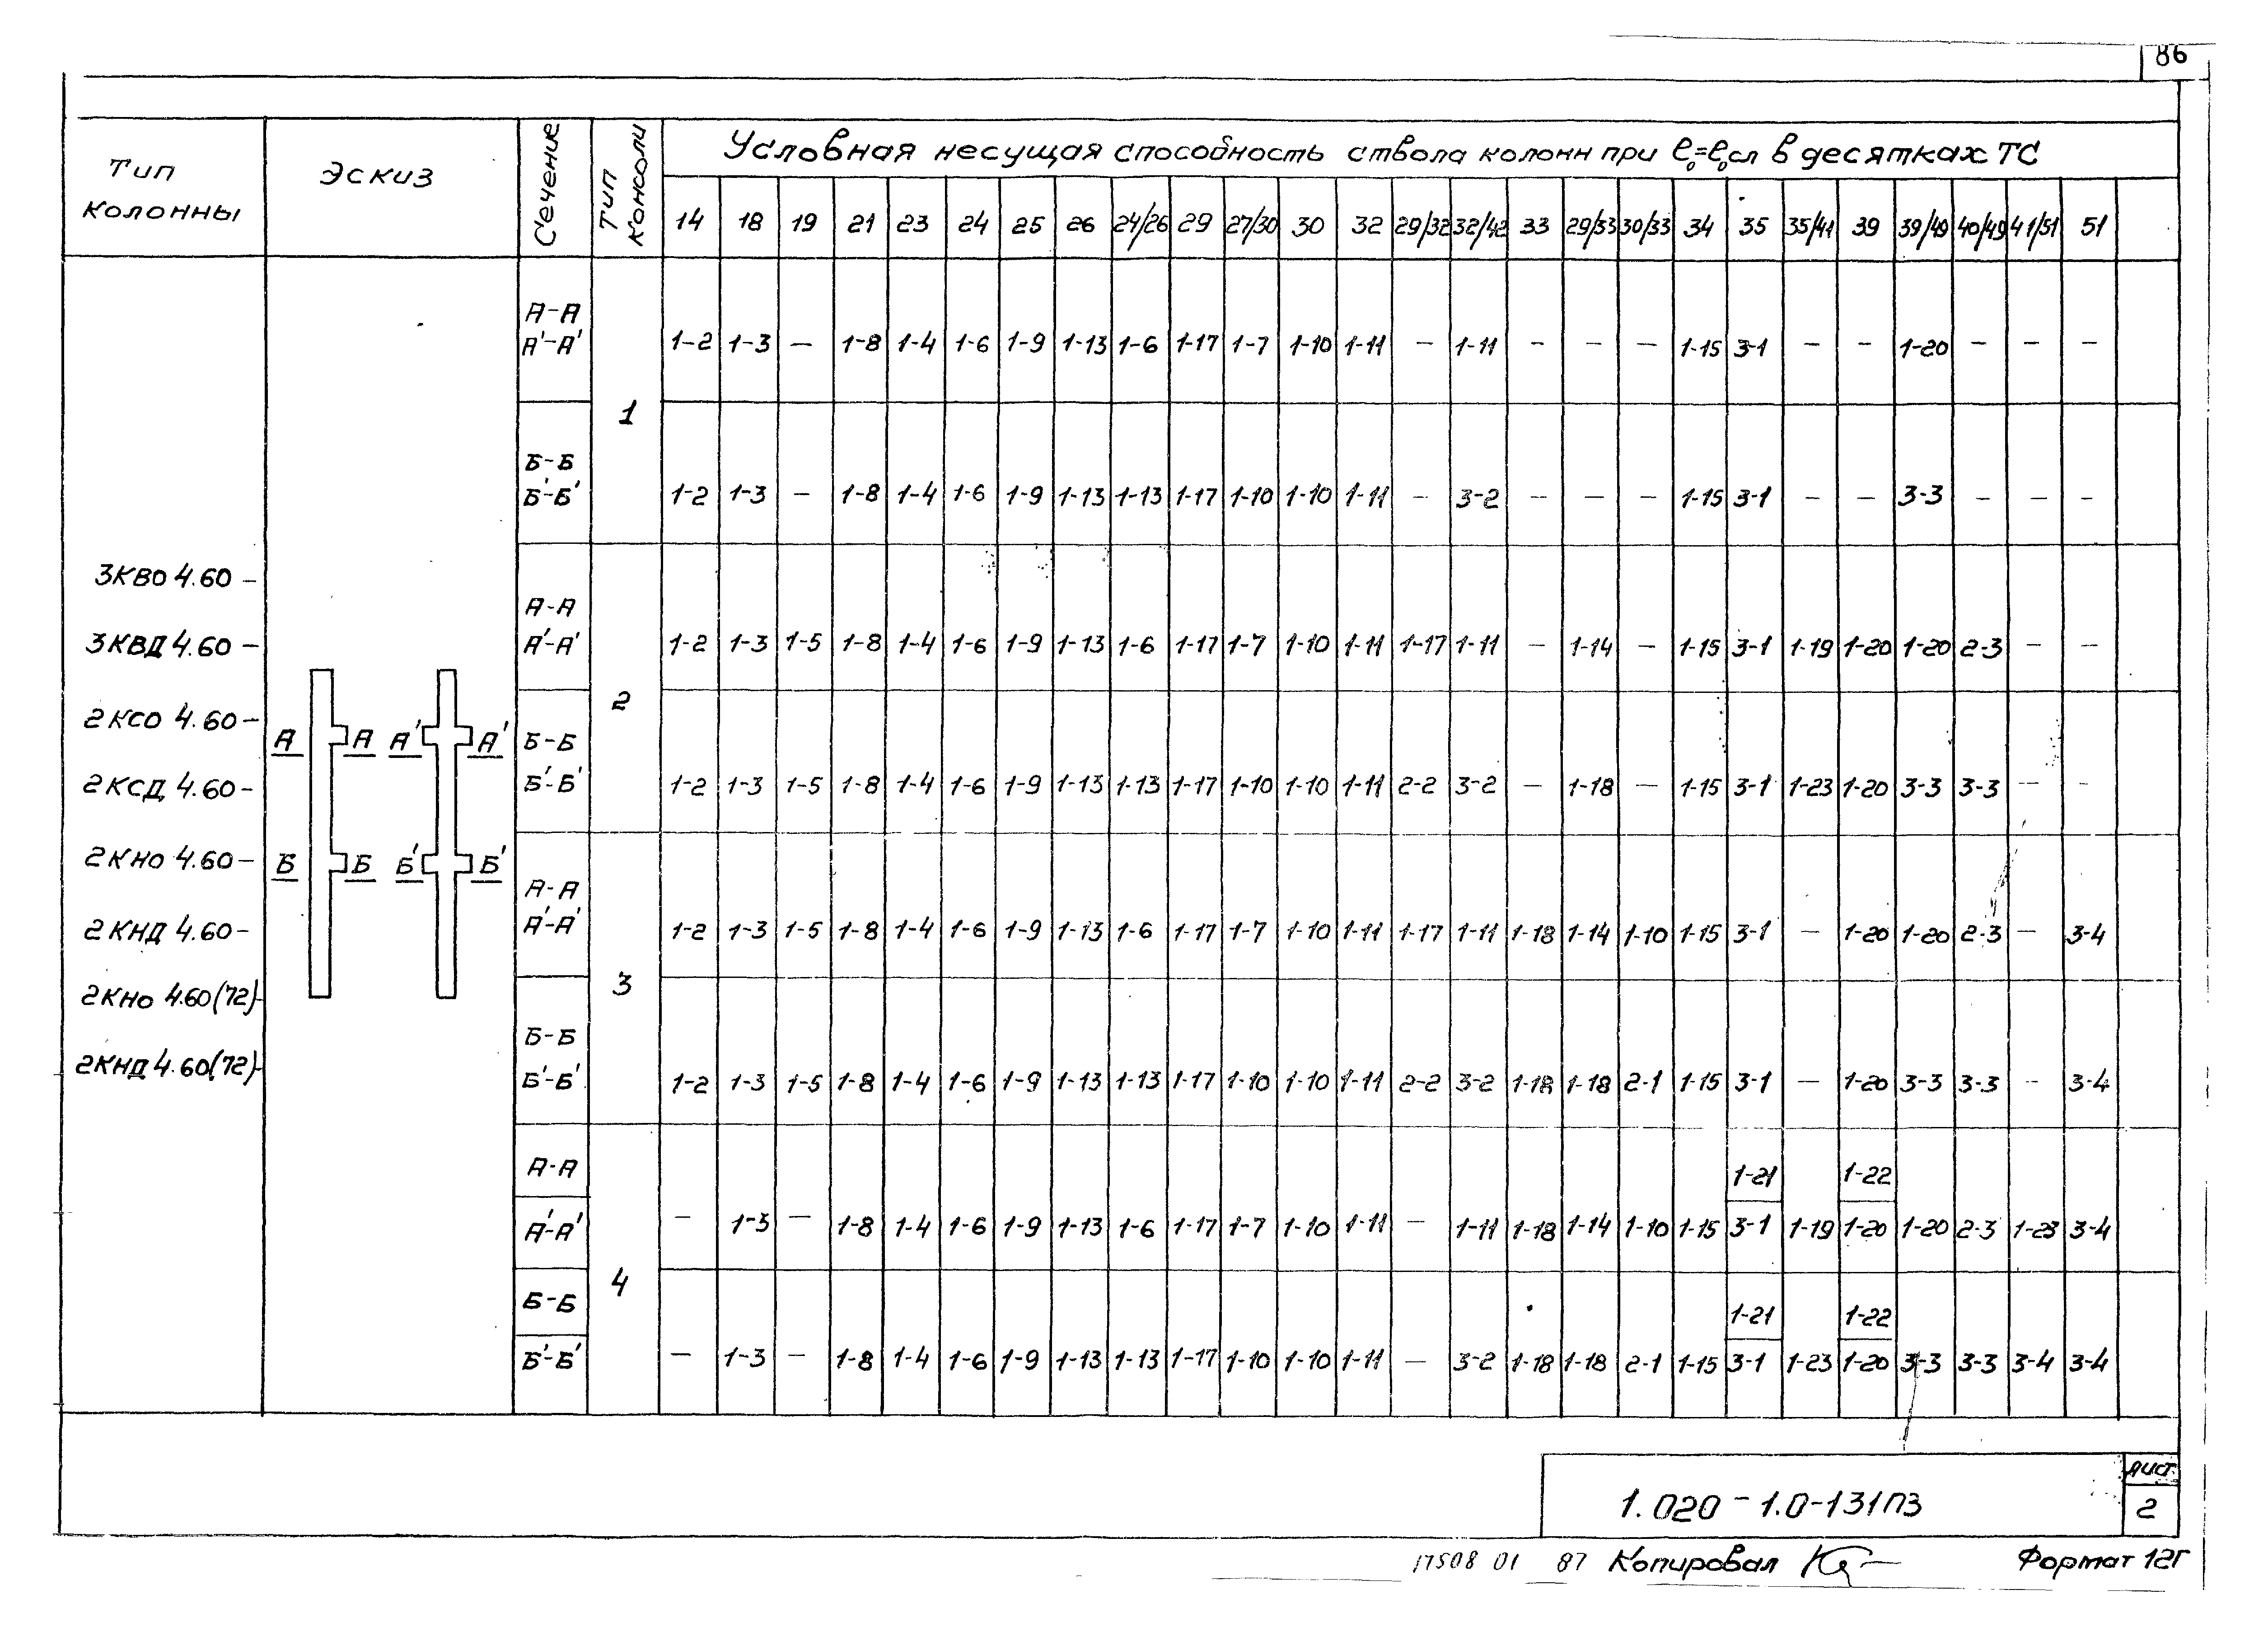 86
Тип колонны | Эскиз | Сечение | Тип консоли | Условная несущая способность ствола колонн при e₀=e₀сл в десятках ТС
14 | 18 | 19 | 21 | 23 | 24 | 25 | 26 | 24/26 | 29 | 27/30 | 30 | 32 | 29/32 | 32/42 | 33 | 29/33 | 30/33 | 34 | 35 | 35/41 | 39 | 39/49 | 40/49 | 41/51 | 51
3КВО 4.60 –
3КВД 4.60 –
2КСО 4.60 –
2КСД 4.60 –
2КНО 4.60 –
2КНД 4.60 –
2КНО 4.60(72)-
2КНД 4.60(72)-
А А А' А'
Б Б Б' Б'
1
А-А
А'-А' | 1-2 | 1-3 | – | 1-8 | 1-4 | 1-6 | 1-9 | 1-13 | 1-6 | 1-17 | 1-7 | 1-10 | 1-11 | – | 1-11 | – | – | – | 1-15 | 3-1 | – | – | 1-20 | – | – | –
Б-Б
Б'-Б' | 1-2 | 1-3 | – | 1-8 | 1-4 | 1-6 | 1-9 | 1-13 | 1-13 | 1-17 | 1-10 | 1-10 | 1-11 | – | 3-2 | – | – | – | 1-15 | 3-1 | – | – | 3-3 | – | – | –
2
А-А
А'-А' | 1-2 | 1-3 | 1-5 | 1-8 | 1-4 | 1-6 | 1-9 | 1-13 | 1-6 | 1-17 | 1-7 | 1-10 | 1-11 | 1-17 | 1-11 | – | 1-14 | – | 1-15 | 3-1 | 1-19 | 1-20 | 1-20 | 2-3 | – | –
Б-Б
Б'-Б' | 1-2 | 1-3 | 1-5 | 1-8 | 1-4 | 1-6 | 1-9 | 1-13 | 1-13 | 1-17 | 1-10 | 1-10 | 1-11 | 2-2 | 3-2 | – | 1-18 | – | 1-15 | 3-1 | 1-23 | 1-20 | 3-3 | 3-3 | – | –
3
А-А
А'-А' | 1-2 | 1-3 | 1-5 | 1-8 | 1-4 | 1-6 | 1-9 | 1-13 | 1-6 | 1-17 | 1-7 | 1-10 | 1-11 | 1-17 | 1-11 | 1-18 | 1-14 | 1-10 | 1-15 | 3-1 | – | 1-20 | 1-20 | 2-3 | – | 3-4
Б-Б
Б'-Б' | 1-2 | 1-3 | 1-5 | 1-8 | 1-4 | 1-6 | 1-9 | 1-13 | 1-13 | 1-17 | 1-10 | 1-10 | 1-11 | 2-2 | 3-2 | 1-18 | 1-18 | 2-1 | 1-15 | 3-1 | – | 1-20 | 3-3 | 3-3 | – | 3-4
4
А-А | 1-21 | 1-22
А'-А' | – | 1-3 | – | 1-8 | 1-4 | 1-6 | 1-9 | 1-13 | 1-6 | 1-17 | 1-7 | 1-10 | 1-11 | – | 1-11 | 1-18 | 1-14 | 1-10 | 1-15 | 3-1 | 1-19 | 1-20 | 1-20 | 2-3 | 1-23 | 3-4
Б-Б | 1-21 | 1-22
Б'-Б' | – | 1-3 | – | 1-8 | 1-4 | 1-6 | 1-9 | 1-13 | 1-13 | 1-17 | 1-10 | 1-10 | 1-11 | – | 3-2 | 1-18 | 1-18 | 2-1 | 1-15 | 3-1 | 1-23 | 1-20 | 3-3 | 3-3 | 3-4 | 3-4
1.020 – 1.0-131ПЗ
Лист
2
17508 01 87 Копировал Формат 12Г